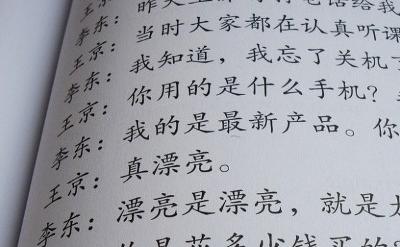 王京：昨天上课时打电话给我
李东：当时大家都在认真听课
王京：我知道，我忘了关机
李东：你用的是什么手机？
王京：我的是最新产品。你
李东：真漂亮。
王京：漂亮是漂亮，就是太
李东：花多少钱买的